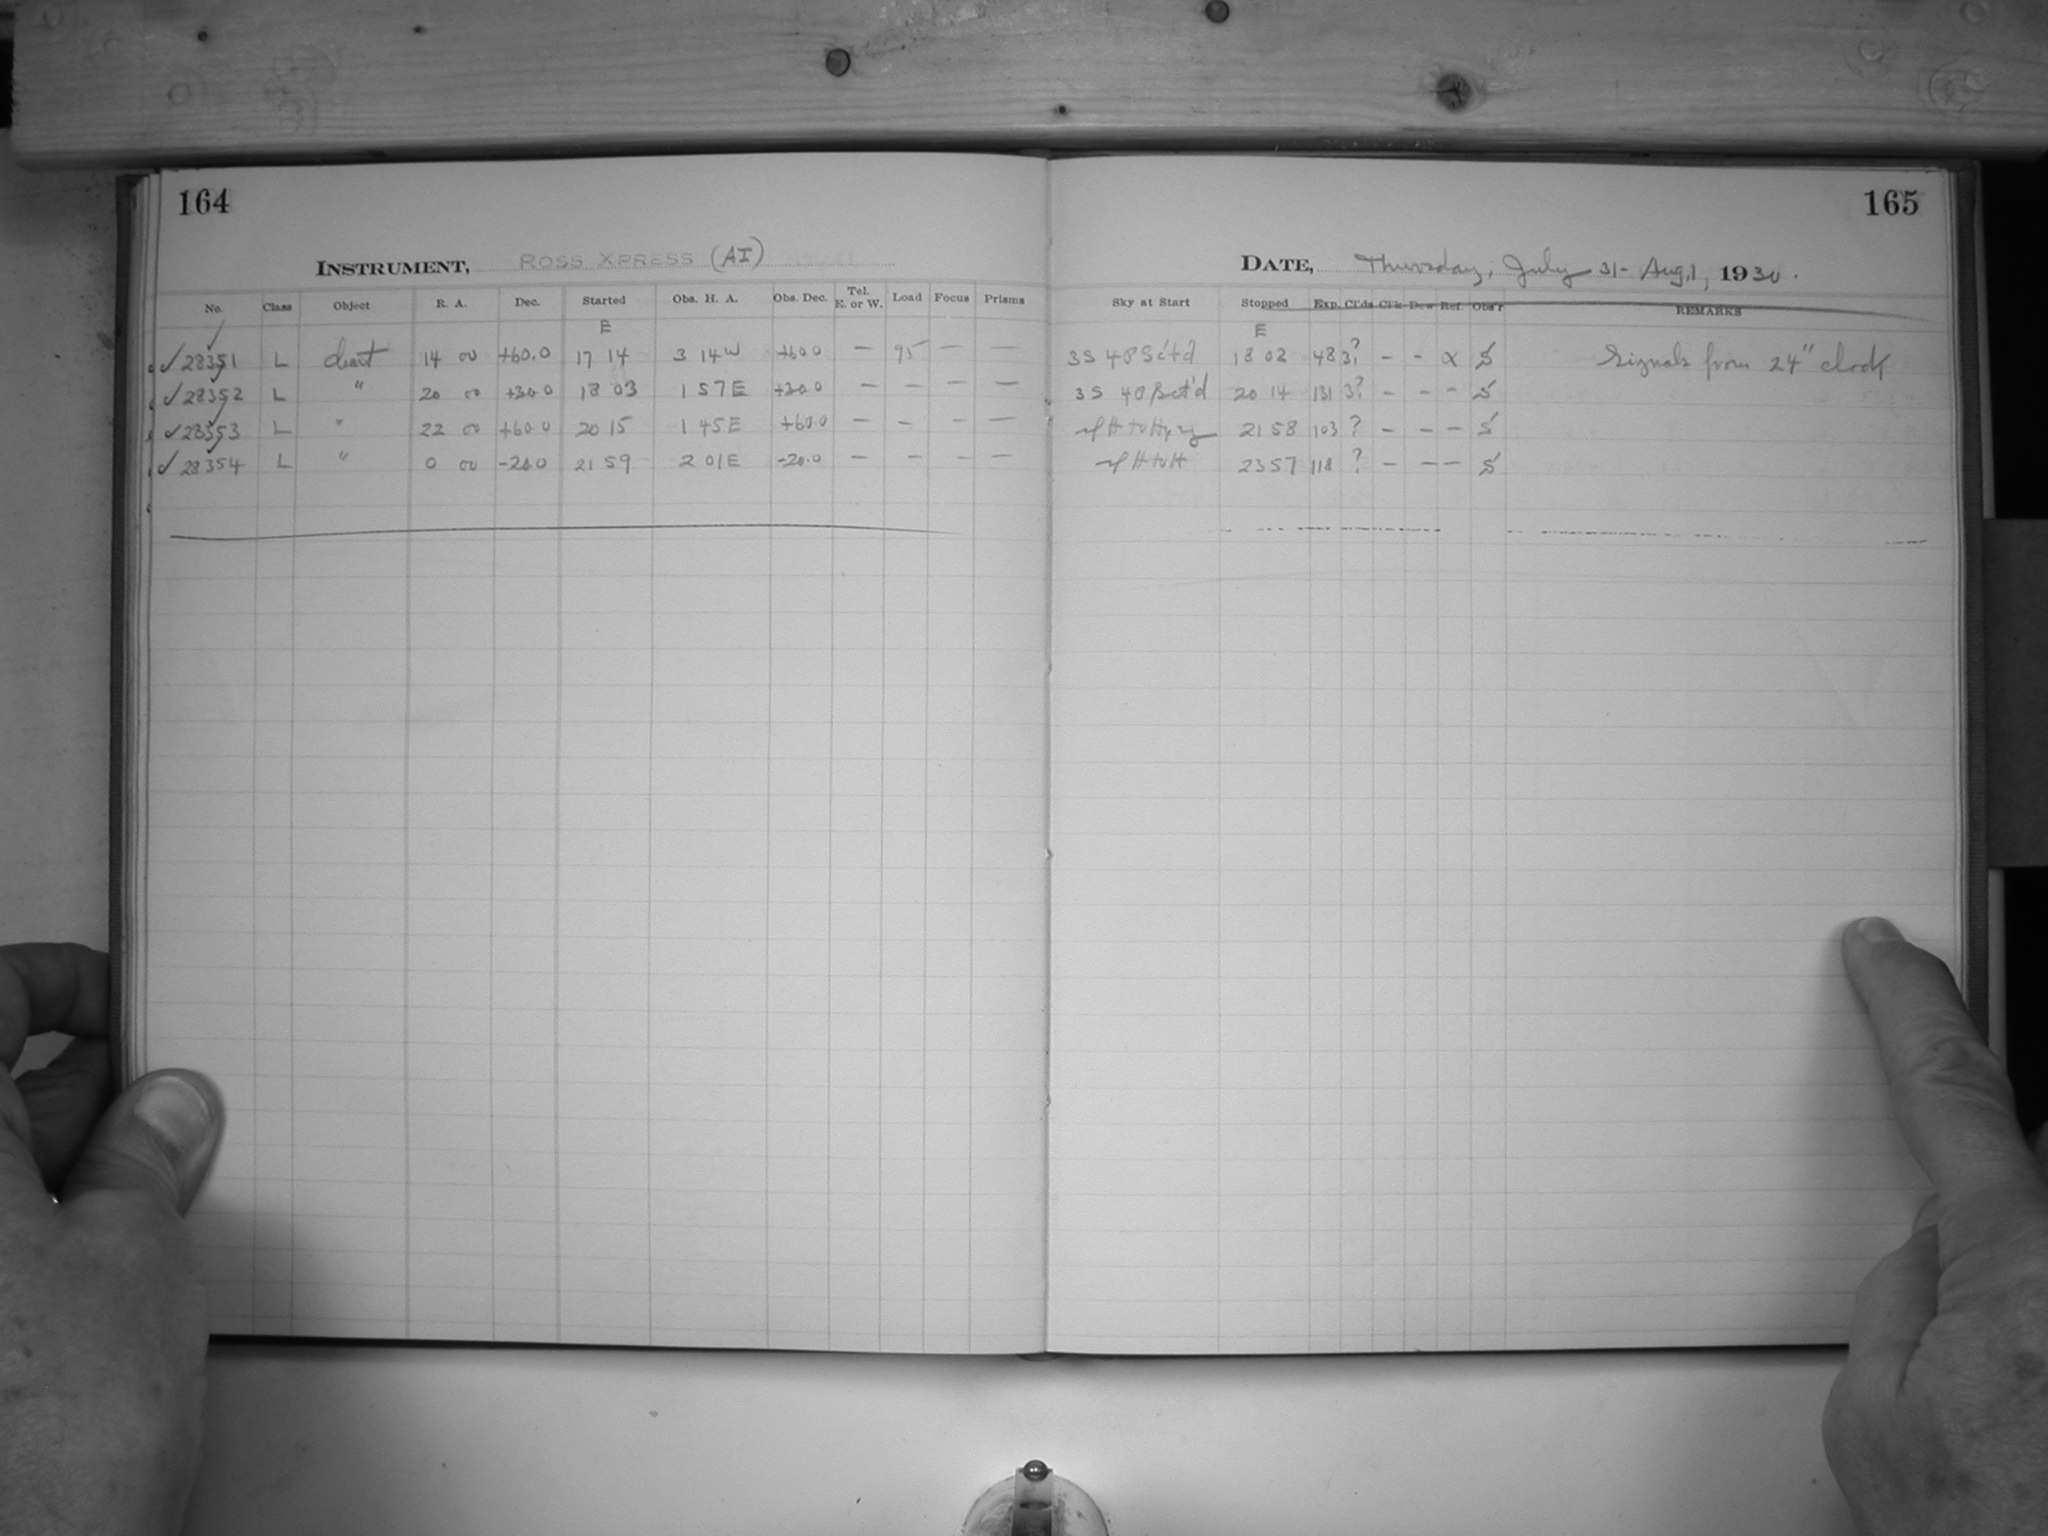 164
165
INSTRUMENT, ROSS XPRESS (AI)
DATE, Thursday, July 31- Aug, 1, 1930.
No. Class Object R. A. Dec. Started Obs. H. A. Obs. Dec. Tel. E. or W. Load Focus Prisms Sky at Start Stopped Exp. Cl'ds Cl'k Dew Ref. Obs'r REMARKS
E E
✓28351 L chart 14 00 +60.0 17 14 3 14W +60.0 — 95 — — 3S 4P Sct'd 18 02 48 3? - - α S Signals from 24" clock
✓28352 L " 20 00 +30.0 18 03 1 57E +30.0 — — — — 3S 4P Sct'd 20 14 131 3? - - - S
✓28353 L " 22 00 +60.0 20 15 1 45E +60.0 — - - — 21 58 103 ? - - - S
✓28354 L " 0 00 -20.0 21 59 2 01E -20.0 — — - — 23 57 118 ? - - - S